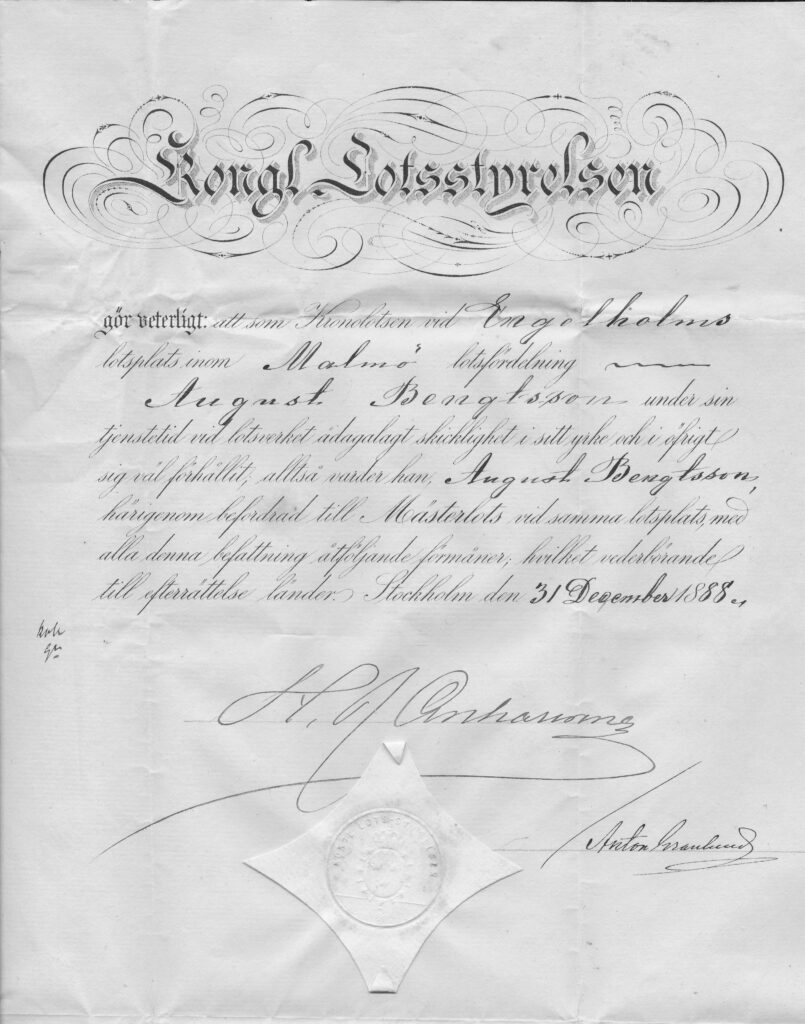 Kongl. Lotsstyrelsen
gör veterligt: att som Kronolotsen vid Engelholms
lotsplats inom Malmö lotsfördelning
August Bengtsson under sin
tjenstetid vid lotsverket ådagalagt skicklighet i sitt yrke och i öfrigt
sig väl förhållit; alltså varder han, August Bengtsson,
härigenom befordrad till Mästerlots vid samma lotsplats, med
alla denna befattning åtföljande förmåner; hvilket vederbörande
till efterrättelse länder. Stockholm den 31 December 1888.
Anton